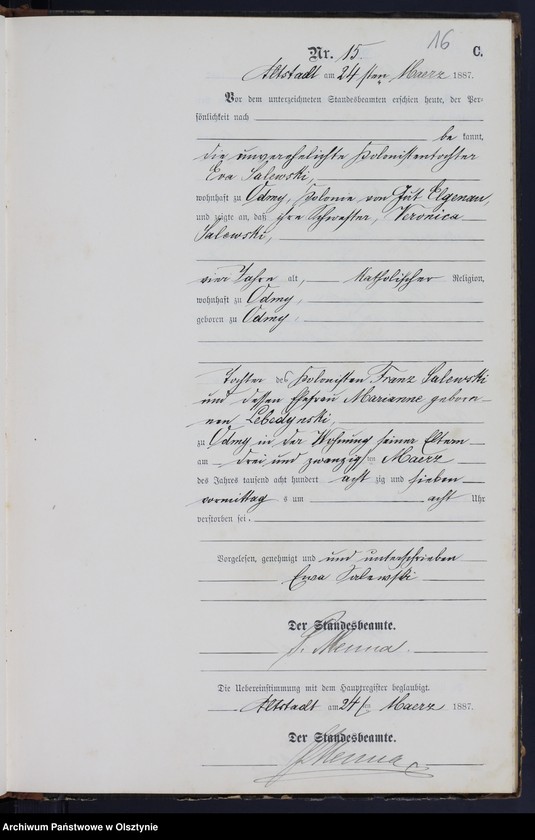 16
Nr. 15. C.
Altstadt am 24 sten Maerz 1887.
Vor dem unterzeichneten Standesbeamten erschien heute, der Per-
sönlichkeit nach
be kannt,
die unverehelichte Kolonistentochter
Eva Salewski,
wohnhaft zu Odmy, Kolonie von Gut Elgenau,
und zeigte an, daß ihre Schwester, Veronica
Salewski,
vier Jahre alt, Katholischer Religion,
wohnhaft zu Odmy,
geboren zu Odmy,
Tochter des Kolonisten Franz Salewski
und dessen Ehefrau Marianne gebore-
nen Lebedynski,
zu Odmy in der Wohnung seiner Eltern
am drei und zwanzigsten Maerz
des Jahres tausend acht hundert acht zig und sieben
vormittags um acht Uhr
verstorben sei.
Vorgelesen, genehmigt und und unterschrieben
Ewa Salewski
Der Standesbeamte.
Menna.
Die Uebereinstimmung mit dem Hauptregister beglaubigt.
Altstadt am 24 ten Maerz 1887.
Der Standesbeamte.
Menna
Archiwum Państwowe w Olsztynie